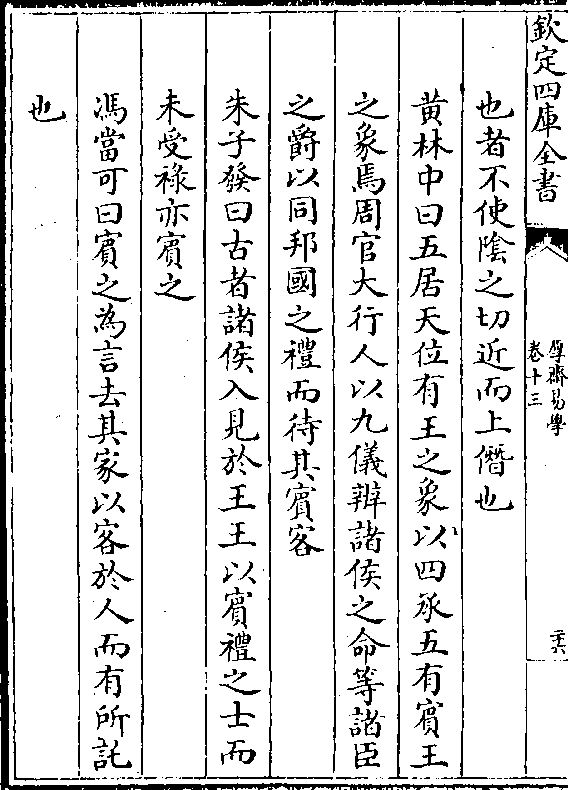 欽定四庫全書
厚齋易學
卷十三
二十六
也者不使陰之切近而上僭也
黄林中曰五居天位有王之象以四承五有賓王
之象焉周官大行人以九儀辨諸侯之命等諸臣
之爵以同邦國之禮而待其賓客
朱子發曰古者諸侯入見於王王以賓禮之士而
未受祿亦賓之
馮當可曰賓之為言去其家以客於人而有所託
也